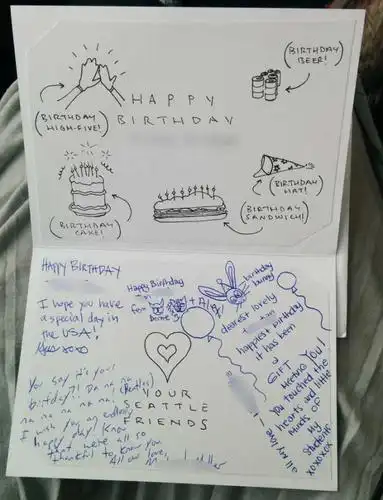 BIRTHDAY
BEER!
HAPPY
BIRTHDAY
BIRTHDAY
HIGH-FIVE!
BIRTHDAY
HAT!
BIRTHDAY
CAKE!
BIRTHDAY
SANDWICH!
HAPPY BIRTHDAY
I hope you have
a special day in
the USA!
xoxo
Happy Birthday
from
+ Alex!
birthday
bunny
dearest lovely
happiest birthday
it has been
a
GIFT
Meeting YOU!
You touched the
hearts and little
minds of
My
students
all my love!
xoxoxox
YOUR
SEATTLE
FRIENDS
You say it's your
birthday?! Da na na (Beatles)
na na na na na,
I wish you an endlessly
happy day! Know
that we're all so
thankful to know you
All our love,